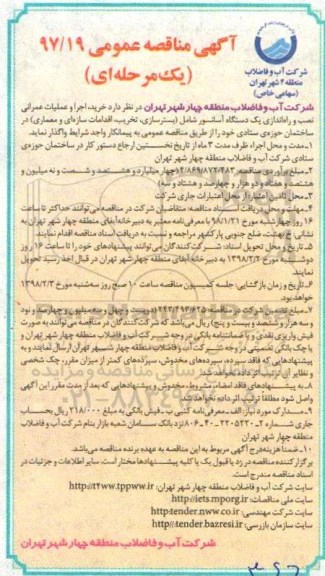 شرکت آب و فاضلاب
منطقه ۴ شهر تهران
(سهامی خاص)
آگهی مناقصه عمومی ۹۷/۱۹
(یک مرحله‌ای)
شرکت آب و فاضلاب منطقه چهار شهر تهران در نظر دارد خرید، اجرا و عملیات عمرانی
نصب و راه‌اندازی یک دستگاه آسانسور شامل (بسترسازی، تخریب، اقدامات سازه‌ای و معماری) در
ساختمان حوزه‌ی ستادی خود را از طریق مناقصه عمومی به پیمانکار واجد شرایط واگذار نماید.
۱- مدت و محل اجرا: ظرف مدت ۳ ماه از تاریخ نخستین ارجاع دستور کار در ساختمان حوزه‌ی
ستادی شرکت آب و فاضلاب منطقه چهار شهر تهران
۲- مبلغ برآوردی مناقصه: چهار میلیارد و هشتصد و شصت و نه میلیون و
هشتصد و هفتاد و دو هزار و چهارصد و هشتاد و سه)
۳- محل تامین اعتبار: از محل اعتبارات جاری شرکت
۴- مهلت و محل دریافت اسناد مناقصه: متقاضیان شرکت در مناقصه می‌توانند حداکثر تا ساعت
۱۶ روز چهارشنبه مورخ ۹۸/۱/۲۱ با معرفی‌نامه معتبر به دبیرخانه آبفای منطقه چهار شهر تهران به
نشانی: ضلع جنوبی پارکشهر مراجعه و نسبت به دریافت اسناد مناقصه اقدام نمایند.
۵- تاریخ و محل تحویل اسناد: شرکت‌کنندگان می‌توانند پیشنهادهای خود را تا ساعت ۱۶ روز
دوشنبه مورخ ۱۳۹۸/۲/۲ به دبیرخانه آبفای منطقه چهار شهر تهران در قبال اخذ رسید تحویل
نمایند.
۶- تاریخ و زمان بازگشایی: جلسه کمیسیون مناقصه ساعت ۱۰ صبح روز سه‌شنبه مورخ ۱۳۹۸/۲/۳
خواهد بود.
۷- مبلغ تضمین شرکت در مناقصه: دویست و چهل و سه میلیون و چهارصد و نود
و سه هزار و ششصد و بیست و پنج) ریال می‌باشد که شرکت‌کنندگان در مناقصه می‌توانند به صورت
فیش واریزی نقدی و یا ضمانتنامه بانکی در وجه شرکت آب و فاضلاب منطقه چهار شهر تهران و
یا چک بانکی تضمینی در وجه شرکت آب و فاضلاب منطقه چهار شهر تهران ارسال نمایند و به
پیشنهادهایی که فاقد سپرده، سپرده‌های مخدوش، سپرده‌های کمتر از میزان مقرر، چک شخصی
و نظایر آن ترتیب اثر داده نخواهد شد.
۸- به پیشنهادهای فاقد امضاء، مشروط، مخدوش و پیشنهادهایی که بعد از مدت مقرر این آگهی
واصل شود مطلقا ترتیب اثر داده نخواهد شد.
۹- مدارک مورد نیاز: الف- معرفی‌نامه کتبی ب- فیش بانکی به مبلغ ۲۱۸/۰۰۰ ریال بحساب
جاری شماره نزد بانک سامان شعبه بازار بنام شرکت آب و فاضلاب
منطقه چهار شهر تهران
۱۰- ضمنا هزینه درج آگهی مربوط به این مناقصه به عهده برنده مناقصه می‌باشد.
برگزارکننده مناقصه در رد یا قبول یک یا کلیه پیشنهادها مختار است، سایر اطلاعات و جزئیات در
اسناد مناقصه مندرج است.
سایت شرکت آب و فاضلاب منطقه چهار شهر تهران: http://t4ww.tppww.ir
سایت ملی مناقصات: http://iets.mporg.ir
سایت شرکت مهندسی: http:tender.nww.co.ir
سایت سازمان بازرسی: http://tender.bazresi.ir
شرکت آب و فاضلاب منطقه چهار شهر تهران